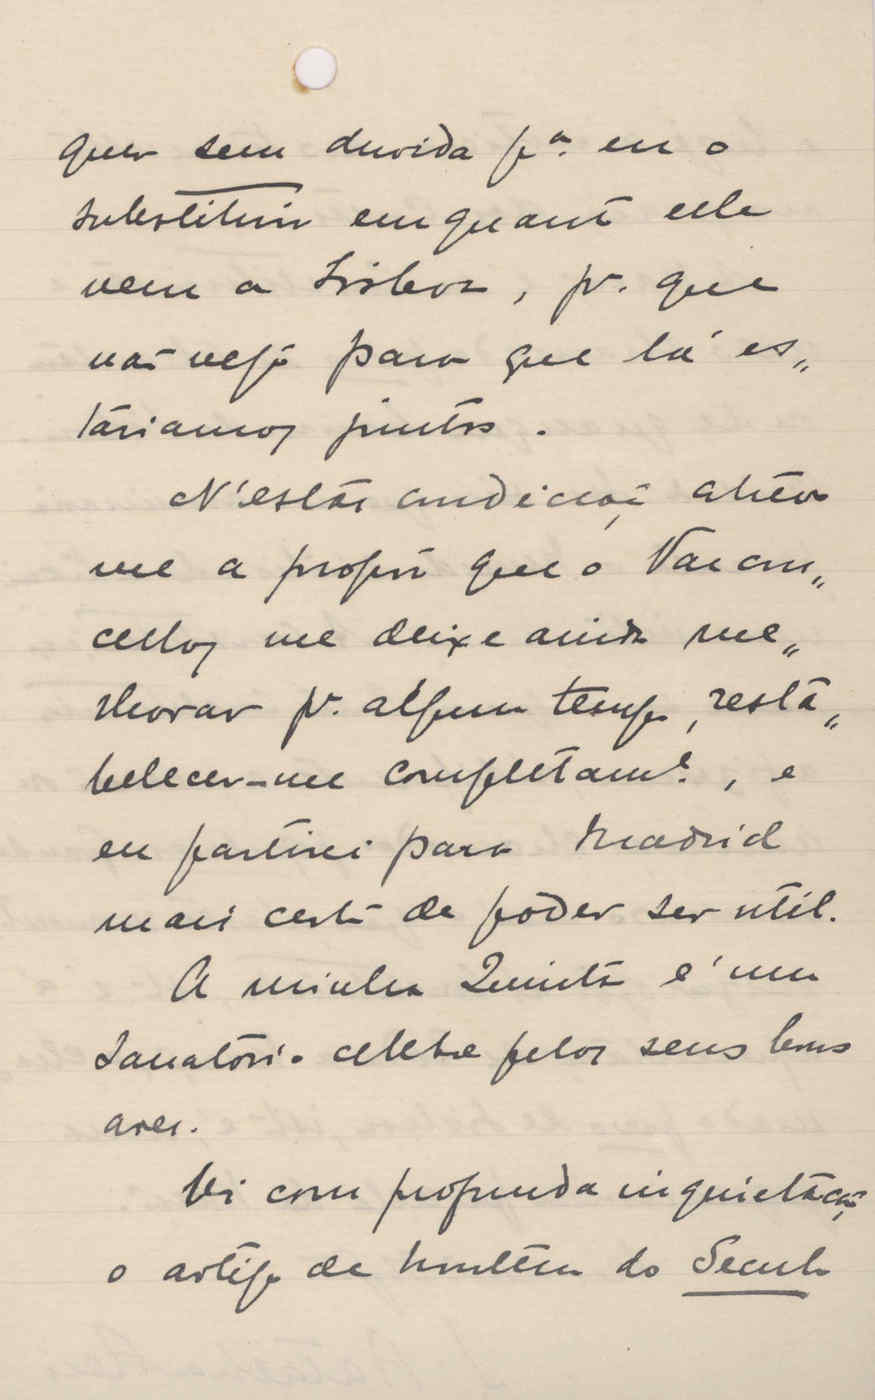 quer sem duvida pª. eu o
substituir emquanto elle
vem a Lisboa, pr. que
não vejo para que lá es„
tariamos juntos.
N'estas condicções atrevo
me a propôr que o Vascon„
cellos me deixe ainda me„
lhorar pr. algum tempo, resta„
belecer-me completamte., e
eu partirei para Madrid
mais certo de poder ser util.
A minha Quinta é um
Sanatorio celebre pelos seus bons
ares.
Vi com profunda inquietação
o artigo de hontem do Seculo